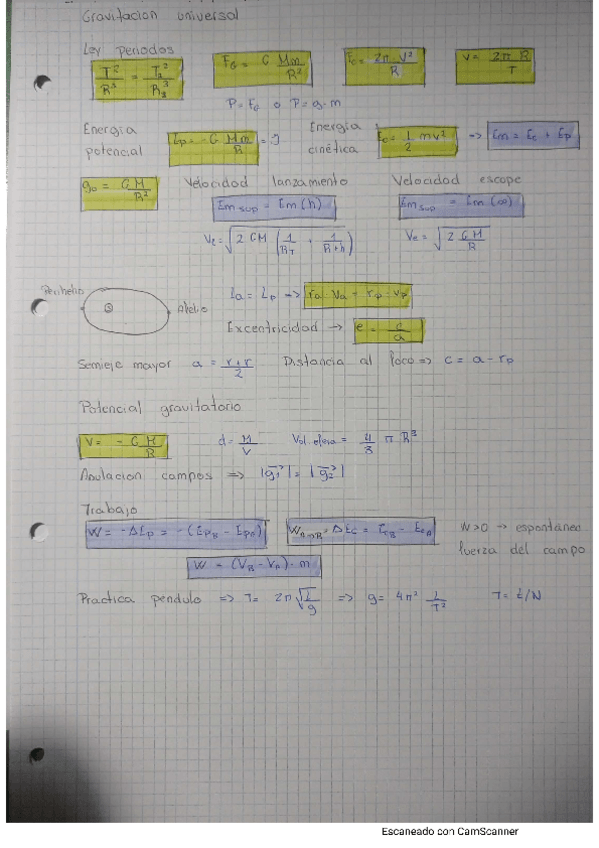 Gravitación universal
Ley periodos
T²/R³ = T₂²/R₂³ F_G = G Mm/R² F_c = 2π V²/R v = 2π R/T
P = F_G o P = g · m
Energía potencial E_p = - G Mm/R = J Energía cinética E_c = 1/2 mv² => E_m = E_c + E_p
g₀ = GM/R² Velocidad lanzamiento Velocidad escape
Em sup = Em(h) Em sup = Em(∞)
V_l = √(2GM (1/R_T + 1/(R+h))) V_e = √(2 GM/R)
Perihelio Afelio L_a = L_p => r_a · V_a = r_p · v_p
Excentricidad → e = c/a
Semieje mayor a = (r+r)/2 Distancia al foco => c = a - r_p
Potencial gravitatorio
V = - GM/R d = M/V Vol. esfera = 4/3 π R³
Anulación campos => |g₁→| = |g₂→|
Trabajo
W = -ΔE_p = -(E_pB - E_pA) W_A→B = ΔE_c = E_cB - E_cA W>0 → espontáneo
fuerza del campo
W = (V_B - V_A) · m
Practica pendulo => T = 2π √(L/g) => g = 4π² L/T² T = t/N
Escaneado con CamScanner